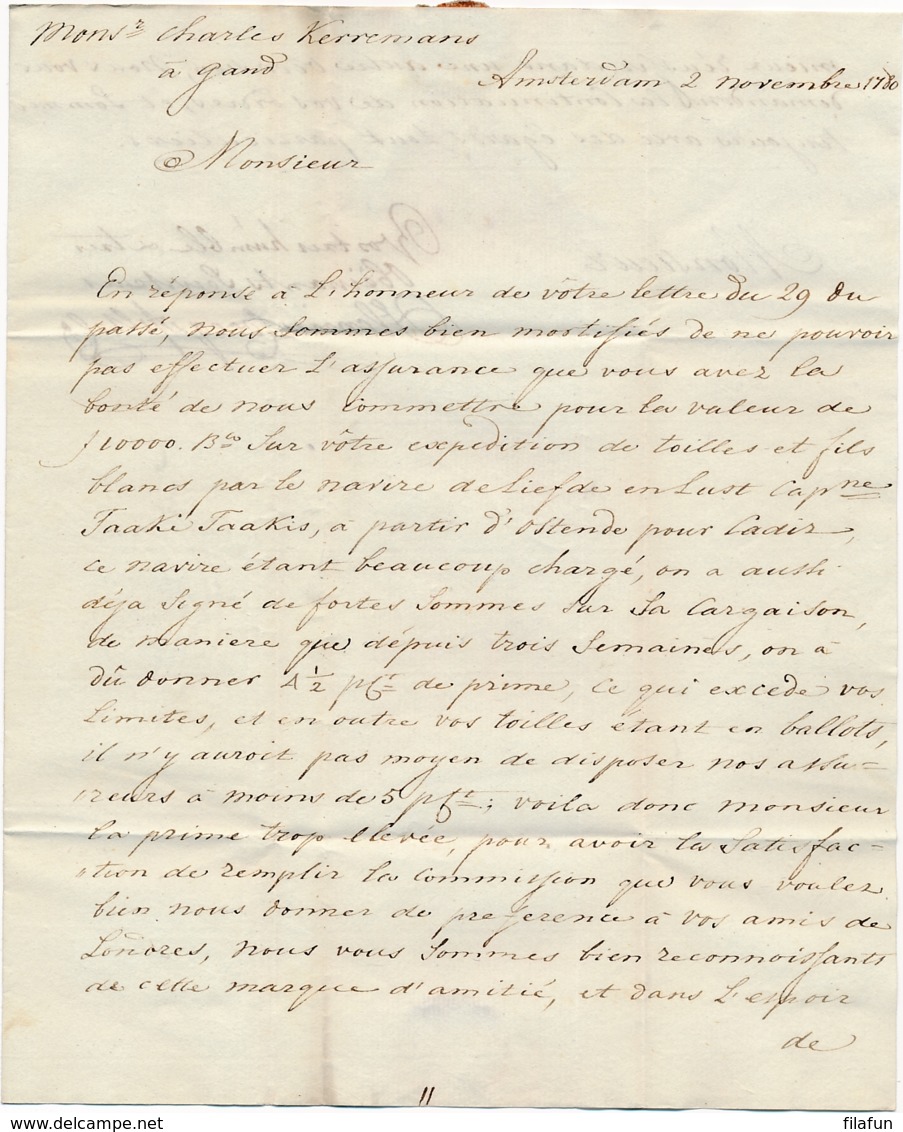 Mons.r Charles Kerremans
à Gand
Amsterdam 2 novembre 1780
Monsieur
En réponse à L'honneur de vôtre lettre du 29 du
passé, nous sommes bien mortifiés de ne pouvoir
pas effectuer L'assurance que vous avez la
bonté de nous commettre pour la valeur de
ƒ10000. B.co sur vôtre expedition de toilles et fils
blancs par le navire de Liefde en Lust Cap.ne
Taake Taakis, à partir d'Ostende pour Cadix,
ce navire étant beaucoup chargé, on a aussi
déja signé de fortes sommes sur sa Cargaison,
de maniere que dépuis trois semaines, on à
dû donner 4 1/2 pCt de prime, ce qui excede vos
Limites, et en outre vos toilles étant en ballots,
il n'y auroit pas moyen de disposer nos assu-
reurs à moins de 5 pCt; voila donc monsieur
la prime trop elevée, pour avoir la satisfac-
ction de remplir la Commission que vous voulez
bien nous donner de preference à vos amis de
Londres, nous vous sommes bien reconnoissants
de cette marque d'amitié, et dans L'espoir
de
11
delcampe.net
filafun